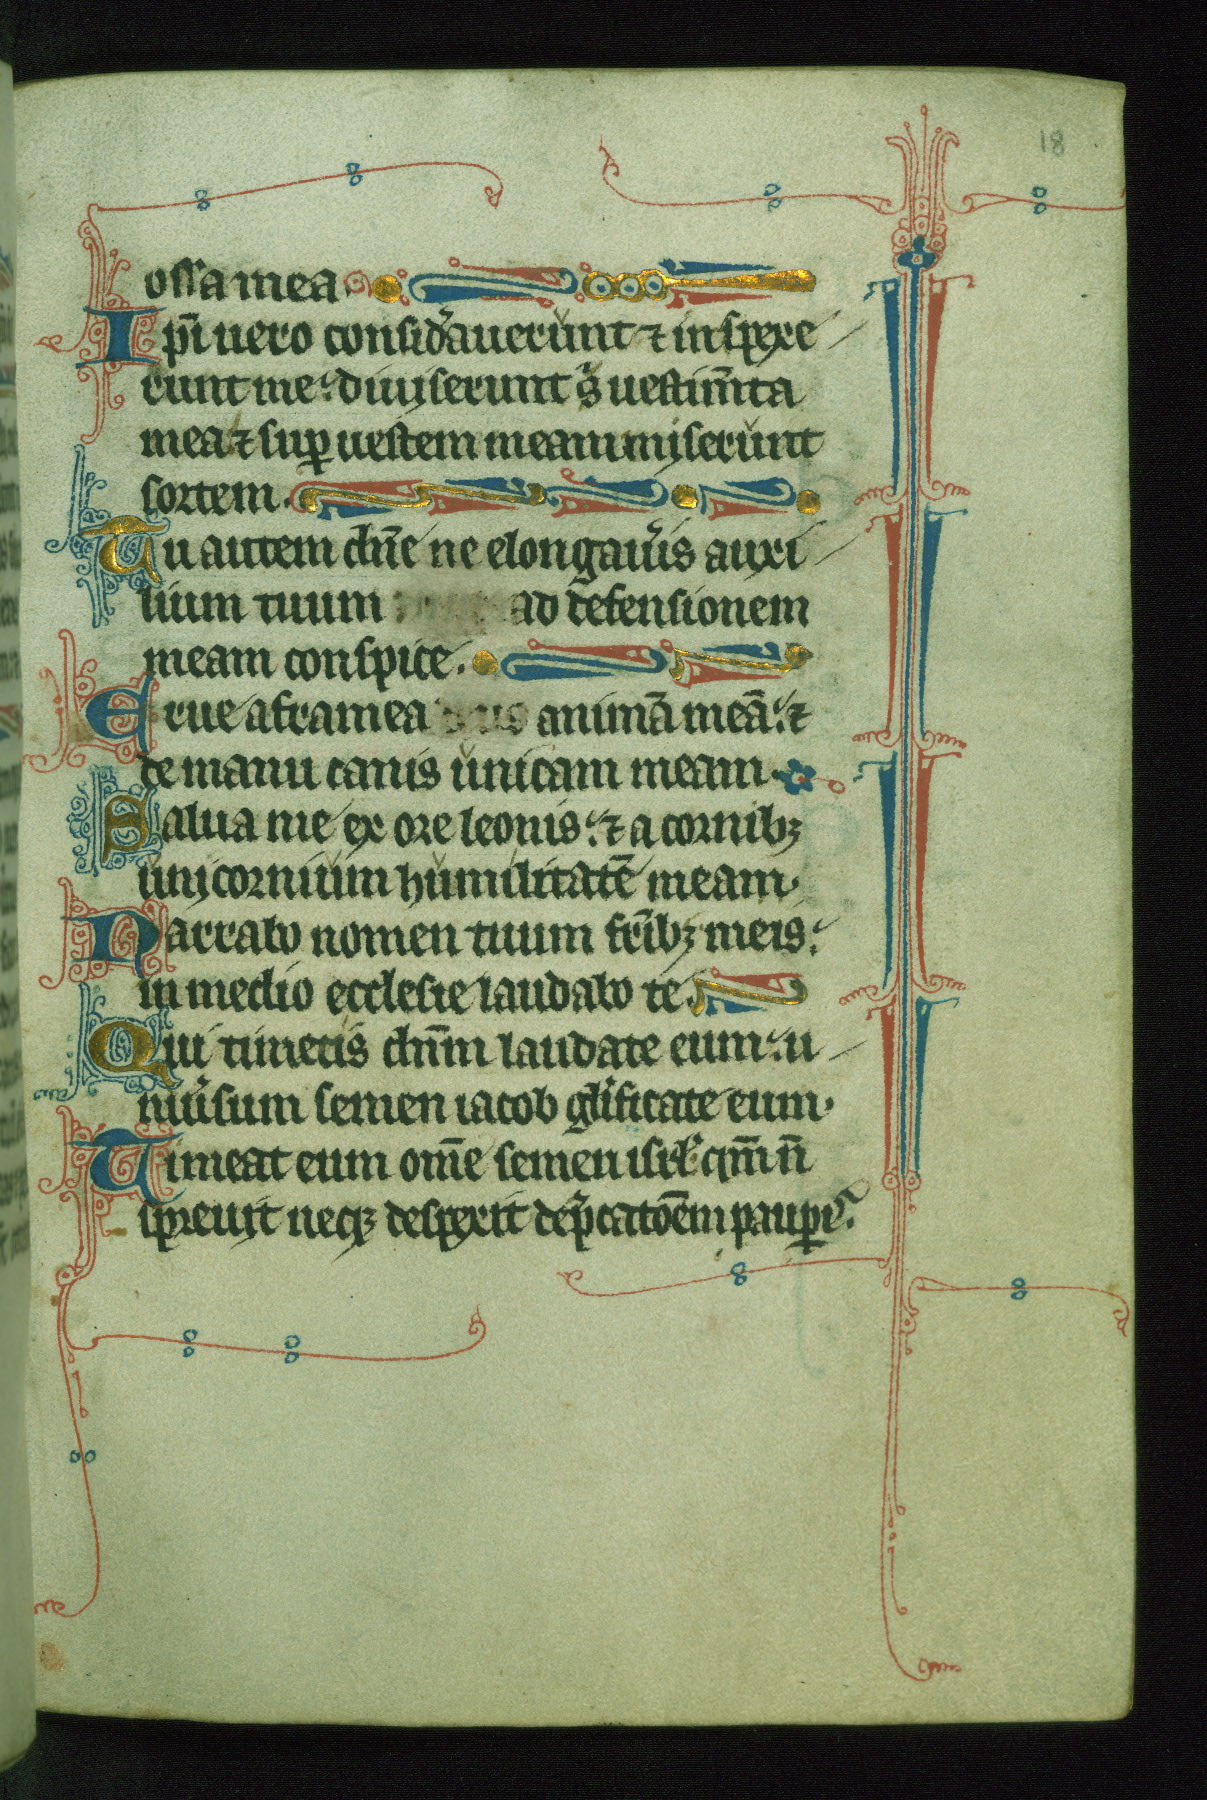 18
ossa mea.
Ip̄i uero consid̾auerunt ⁊ inspexe
runt me: diuiserunt s̾ uestim̄ta
mea ⁊ sup̲ uestem meam miserunt
sortem.
Tu autem dn̄e ne elongau̾is auxi
lium tuum ad defensionem
meam conspice.
Erue a framea animā meā: ⁊
de manu canis unicam meam.
Salua me ex ore leonis: ⁊ a cornibꝫ
unicornium humilitatē meam.
Narrabo nomen tuum fr̄ibꝫ meis:
in medio ecclesie laudabo te.
Qui timetis dn̄m laudate eum: u
niu̾sum semen iacob gl̾ificate eum.
Timeat eum om̄e semen isrl̾ qm̄ n̄
spreuit neqꝫ despexit dep̾catōem paup̲is.